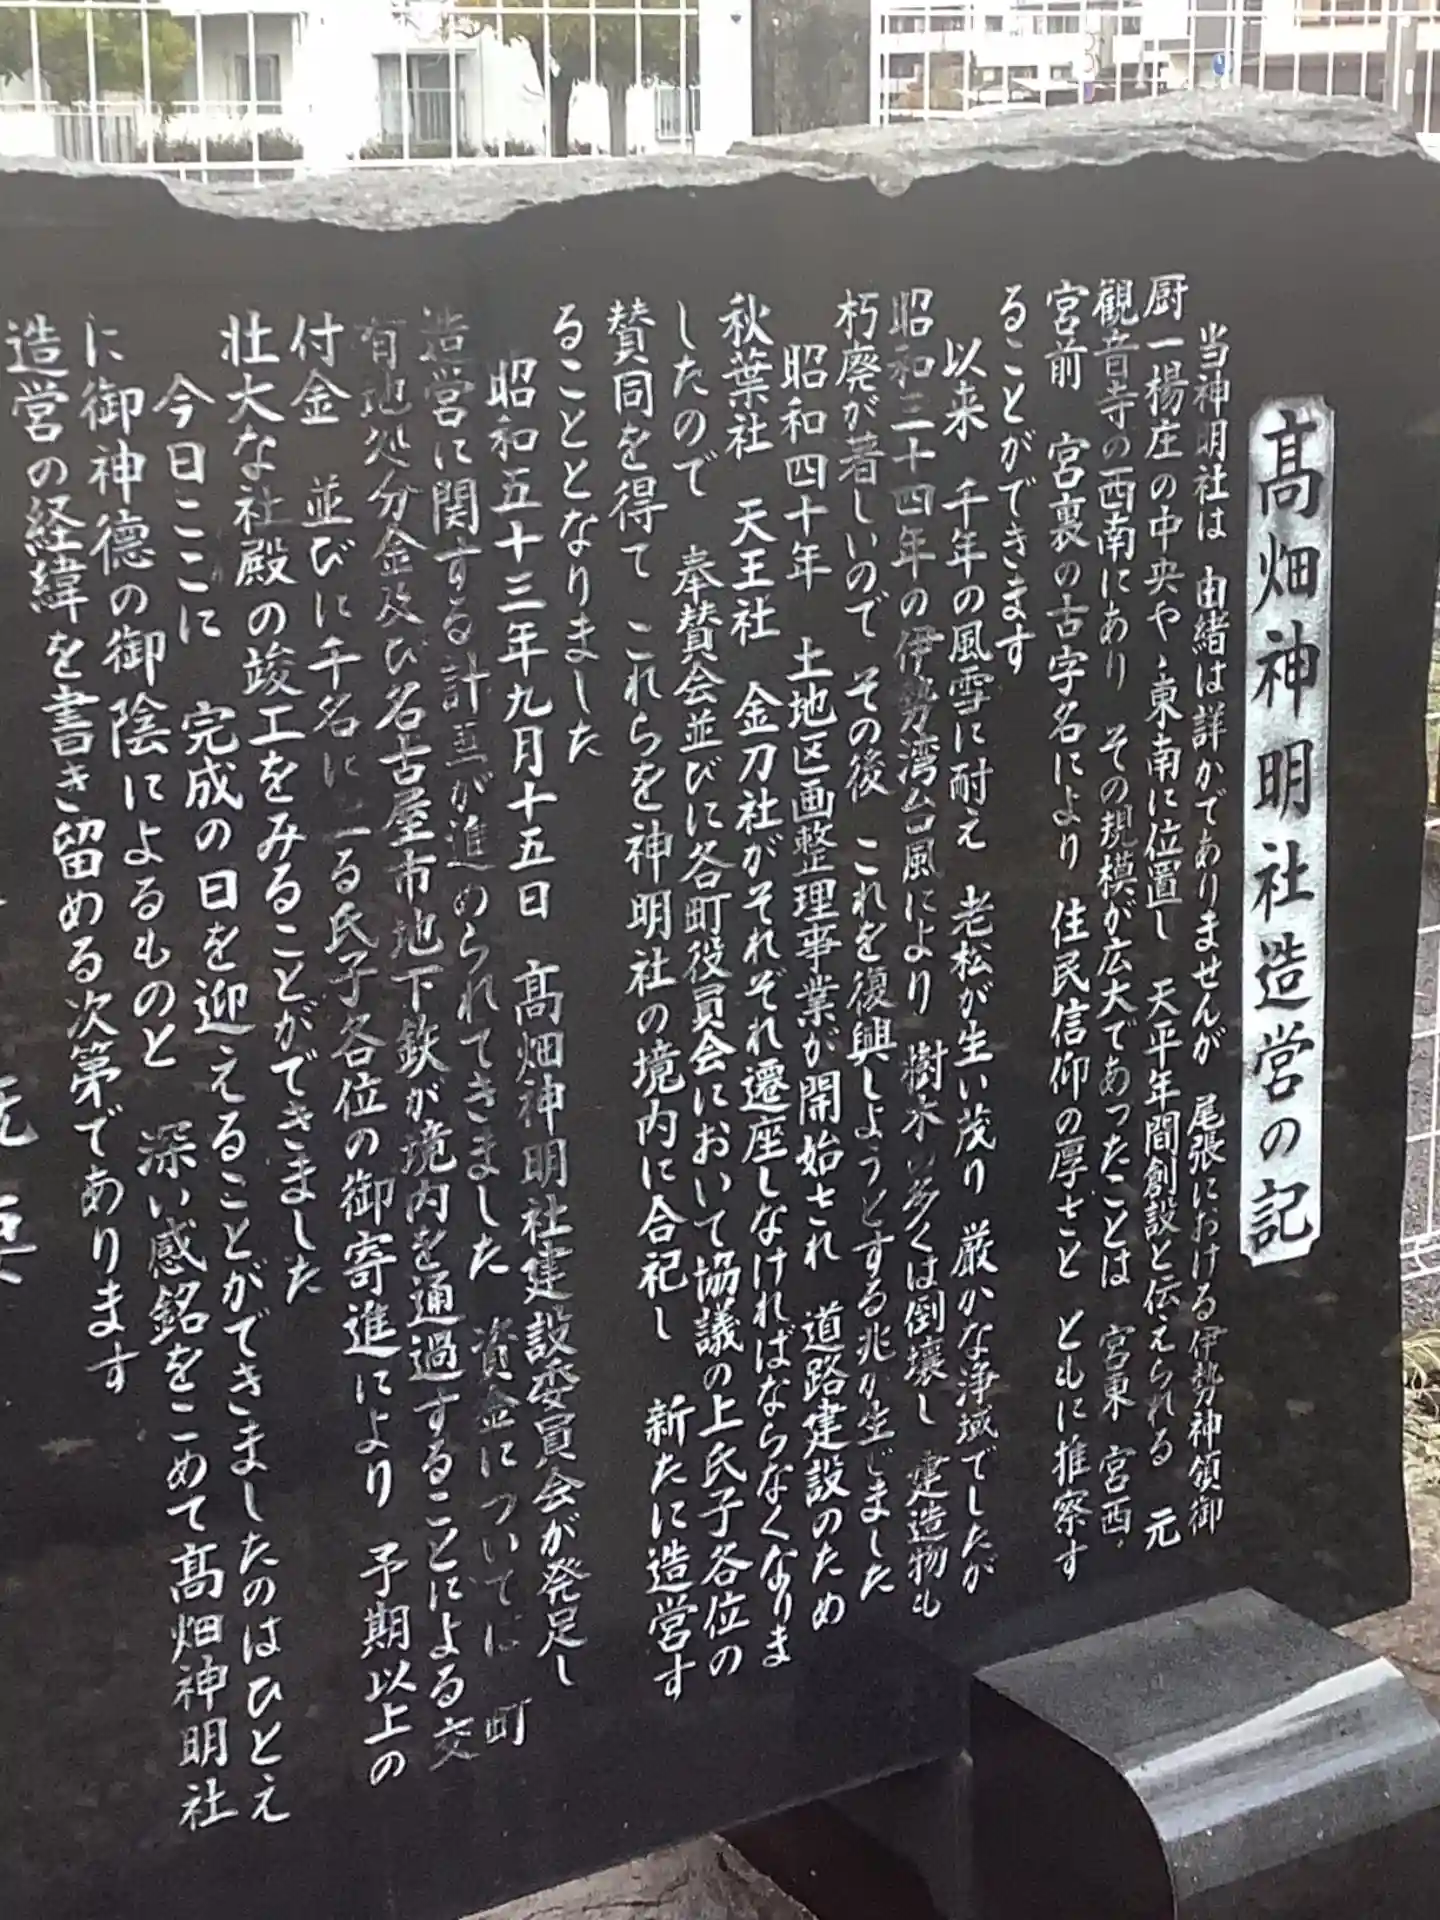 髙畑神明社造営の記
当神明社は 由緒は詳かでありませんが 尾張における伊勢神領御
厨一楊庄の中央やゝ東南に位置し 天平年間創設と伝えられる 元
観音寺の西南にあり その規模が広大であったことは 宮東 宮西
宮前 宮裏の古字名により 住民信仰の厚さと ともに推察す
ることができます
以来 千年の風雪に耐え 老松が生い茂り 厳かな浄域でしたが
昭和三十四年の伊勢湾台風により 樹木の多くは倒壊し 建造物も
朽廃が著しいので その後 これを復興しようとする兆が生じました
昭和四十年 土地区画整理事業が開始され 道路建設のため
秋葉社 天王社 金刀社がそれぞれ遷座しなければならなくなりま
したので 奉賛会並びに各町役員会において協議の上氏子各位の
賛同を得て これらを神明社の境内に合祀し 新たに造営す
ることとなりました
昭和五十三年九月十五日 髙畑神明社建設委員会が発足し
造営に関する計画が進められてきました 資金については 町
有地処分金及び名古屋市地下鉄が境内を通過することによる交
付金 並びに千名に る氏子各位の御寄進により 予期以上の
壮大な社殿の竣工をみることができました
今日ここに 完成の日を迎えることができましたのはひとえ
に御神徳の御陰によるものと 深い感銘をこめて髙畑神明社
造営の経緯を書き留める次第であります